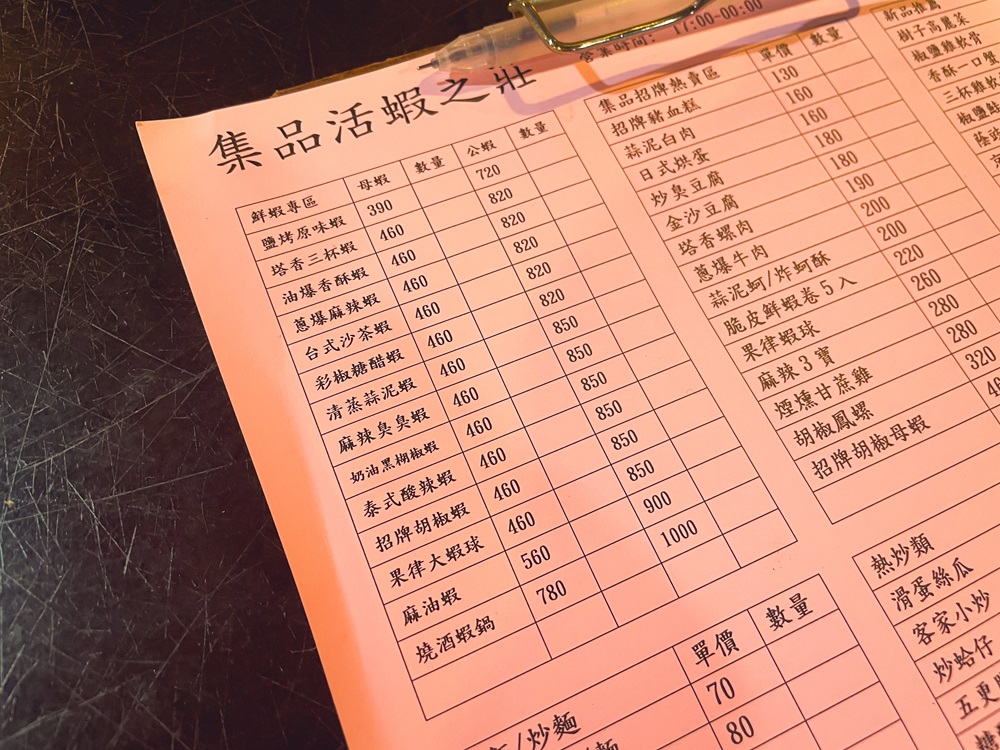 集品活蝦之壯
營業時間: 17:00-00:00
鮮蝦專區 母蝦 數量 公蝦 數量
鹽烤原味蝦 390 720
塔香三杯蝦 460 820
油爆香酥蝦 460 820
蔥爆麻辣蝦 460 820
台式沙茶蝦 460 820
彩椒糖醋蝦 460 820
清蒸蒜泥蝦 460 850
麻辣臭臭蝦 460 850
奶油黑楜椒蝦 460 850
泰式酸辣蝦 460 850
招牌胡椒蝦 460 850
果律大蝦球 460 850
麻油蝦 560 900
燒酒蝦鍋 780 1000
單價 數量
/炒麵 70
80
集品招牌熱賣區 單價 數量
招牌豬血糕 130
蒜泥白肉 160
日式烘蛋 160
炒臭豆腐 180
金沙豆腐 180
塔香螺肉 190
蔥爆牛肉 200
蒜泥蚵/炸蚵酥 200
脆皮鮮蝦卷5入 220
果律蝦球 260
麻辣3寶 280
煙燻甘蔗雞 280
胡椒鳳螺 320
招牌胡椒母蝦
熱炒類
滑蛋絲瓜
客家小炒
炒蛤仔
五更
新品推薦
樹子高麗菜
椒鹽雞軟骨
香酥一口蟹
三杯雞軟
椒鹽